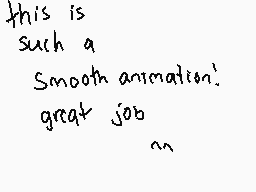 this is
such a
smooth animation!
great job
^^